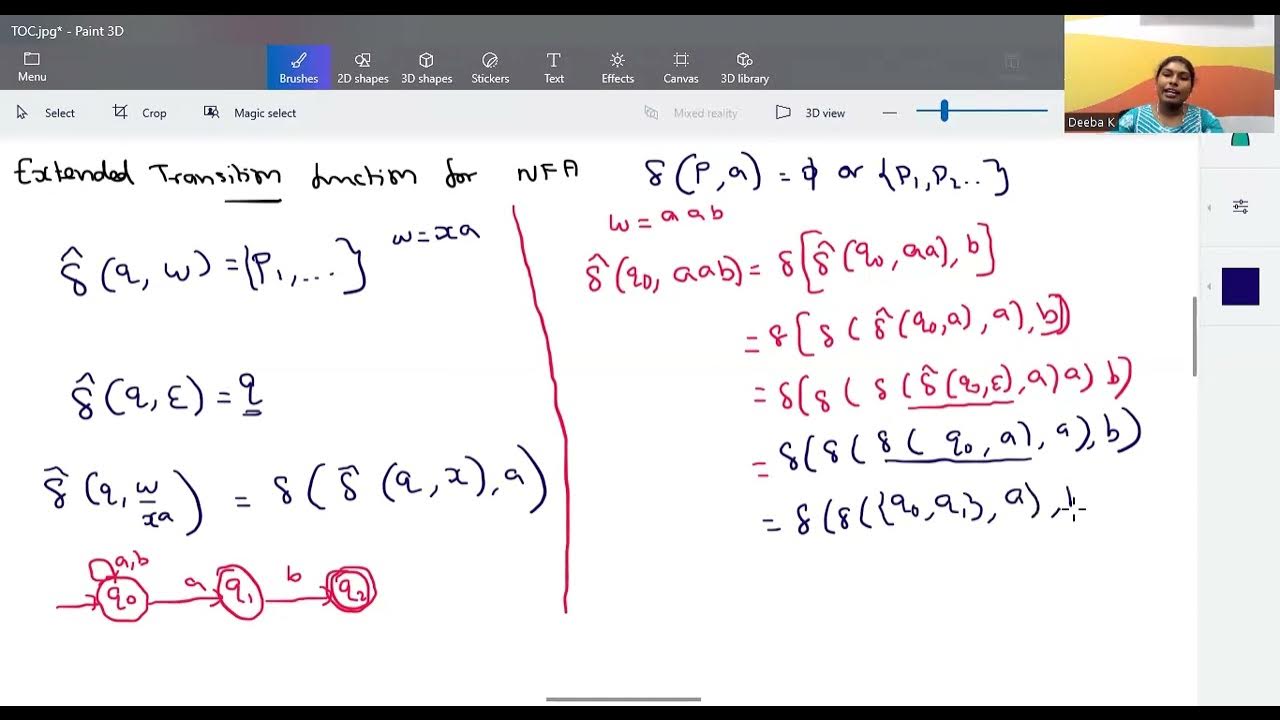 TOC.jpg* - Paint 3D
Menu
Brushes
2D shapes
3D shapes
Stickers
Text
Effects
Canvas
3D library
Select
Crop
Magic select
Mixed reality
3D view
Deeba K
Extended Transition function for NFA
δ̂(q, w) = {P₁, ...} w = xa
δ̂(q, ε) = q
δ̂(q, w/xa) = δ(δ̂(q, x), a)
a,b
q₀ a q₁ b q₂
δ(P, a) = φ or {P₁, P₂ ..}
w = aab
δ̂(q₀, aab) = δ[δ̂(q₀, aa), b]
= δ[δ(δ̂(q₀, a), a), b])
= δ(δ(δ(δ̂(q₀, ε), a) a) b)
= δ(δ(δ(q₀, a), a), b)
= δ(δ({q₀, q₁}, a),